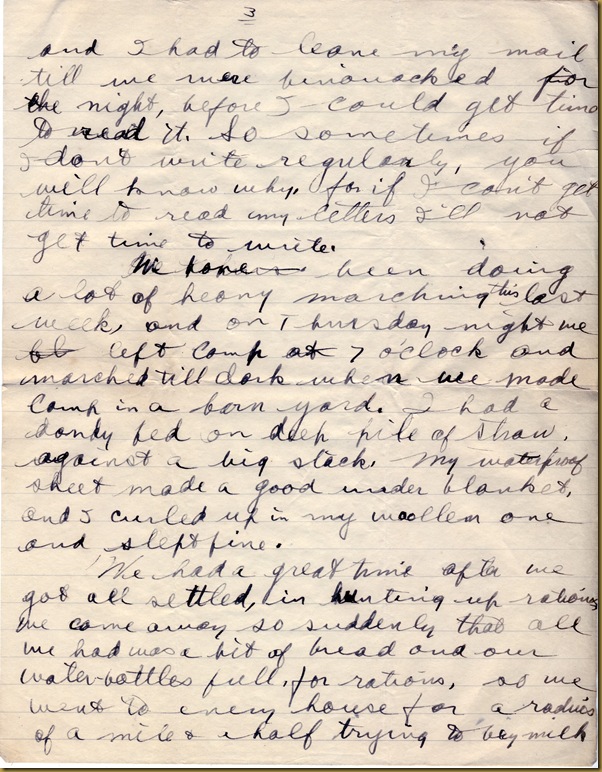 3
and I had to leave my mail
till we were binouacked for
the night, before I could get time
to read it. So sometimes if
I don't write regularly, you
will know why. for if I can't get
time to read my letters I'll not
get time to write.
We have been doing
a lot of heavy marching this last
week, and on Thursday night we
left camp at 7 o'clock and
marched till dark when we made
camp in a barn yard. I had a
dandy bed on deep pile of straw.
against a big stack. My waterproof
sheet made a good under blanket,
and I curled up in my woollen one
and slept fine.
We had a great time after we
got all settled, in hunting up rations
we came away so suddenly that all
we had was a bit of bread and our
water-bottles full, for rations, so we
went to every house for a radius
of a mile & a half trying to buy milk